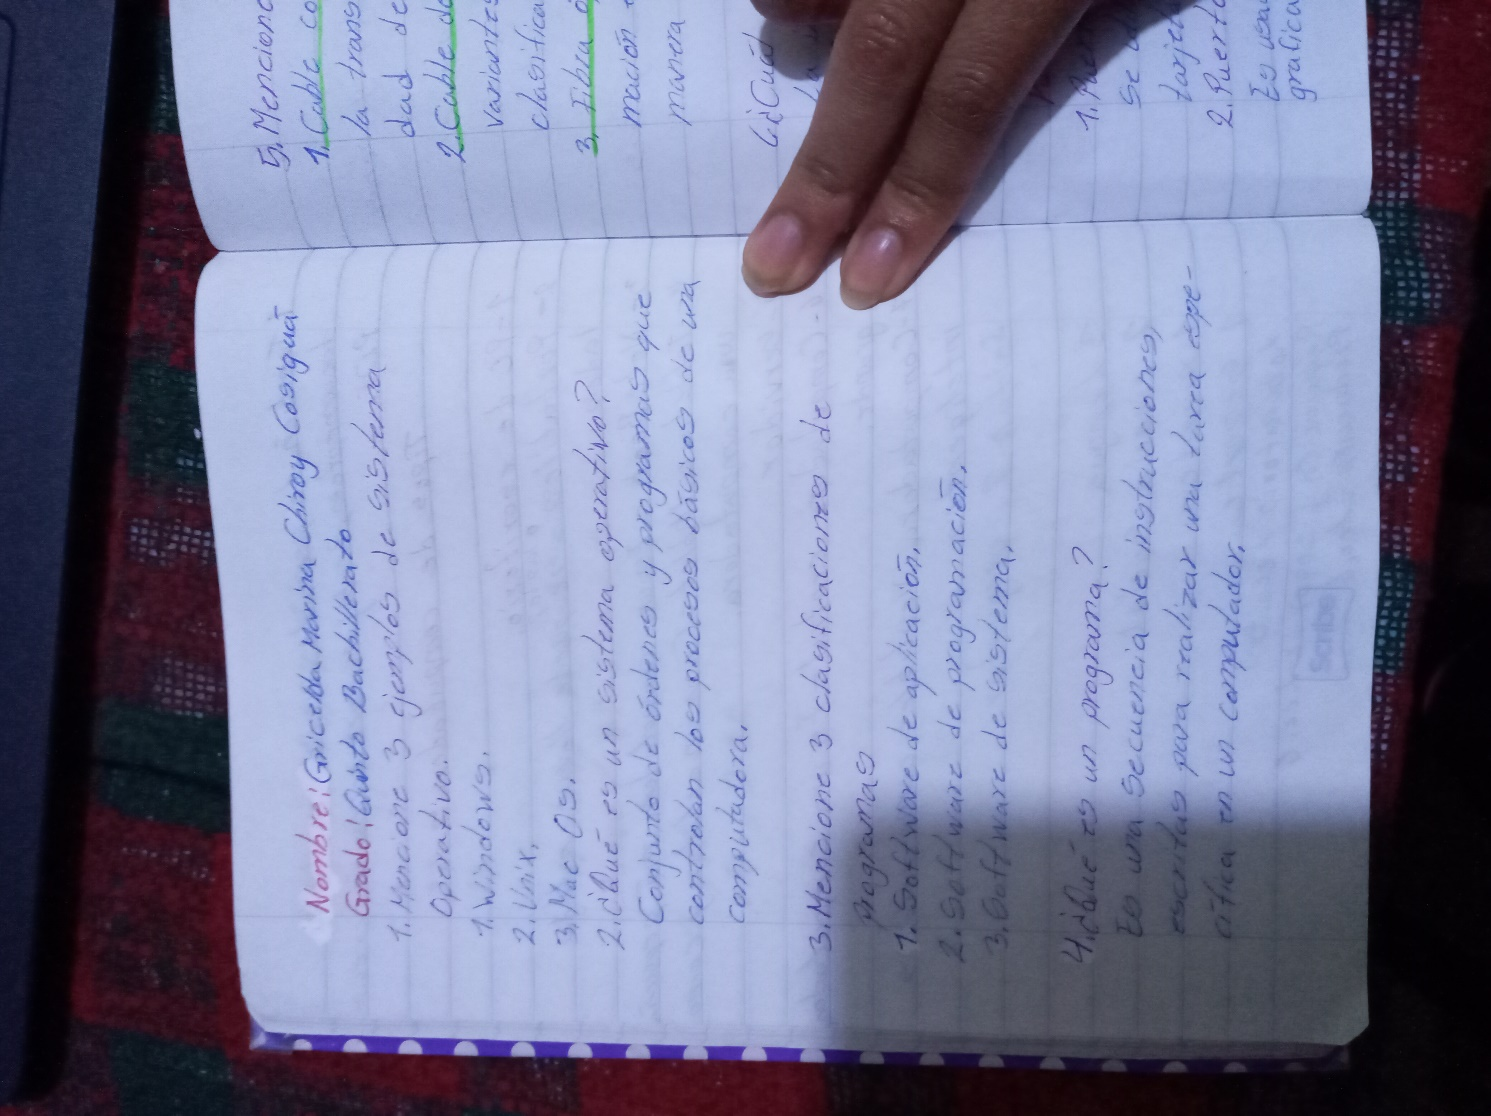 Nombre: Gricelda Marina Chiroy Cosiguá
Grado: Quinto Bachillerato
1. Mencione 3 ejemplos de sistema
Operativo.
1. Windows.
2. Unix.
3. Mac Os.
2. ¿Qué es un sistema operativo?
Conjunto de órdenes y programas que
controlan los procesos básicos de una
computadora.
3. Mencione 3 clasificaciones de
programas
1. Software de aplicación.
2. Software de programación.
3. Software de sistema.
4. ¿Qué es un programa?
Es una secuencia de instrucciones,
escritas para realizar una tarea espe-
cífica en un computador.
5. Mencion
1. Cable co
la trans
dad de
2. Cable de
variantes
clasifica
3. Fibra ó
mación
manera
6. ¿Cuál
la
1. Puer
se
tarjeta
2. Puerto
Es usa
grafica